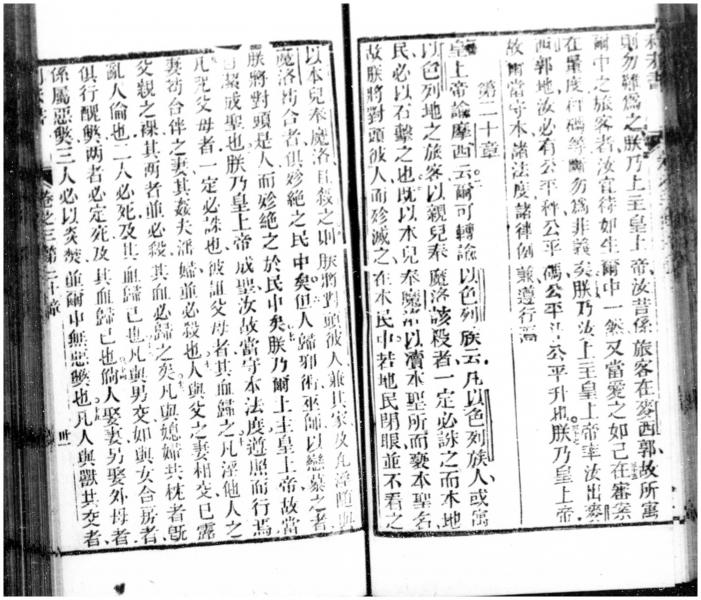 則勿難爲之朕乃上主皇上帝汝昔係旅客在麥西郭故所寓
爾中之旅客者汝宜待如生爾中一然又當愛之如己在審案
在量度秤碼等斷勿爲非義矣朕乃汝上主皇上帝率汝出麥
西郭地汝必有公平秤公平碼公平斗公平升也朕乃皇上帝
故爾當守本諸法度諸律例兼遵行焉
第二十章
皇上帝諭摩西云爾可轉諭以色列族云凡以色列族人或寓
以色列地之旅客以親兒奉魔洛該殺者一定必誅之而本地
民必以石擊之也既以本兒奉魔洛以瀆本聖所而褻本聖名
故朕將對頭彼人而殄滅之在本民中若地民閉眼並不看之
以本兒奉魔洛且殺之則朕將對頭彼人兼其家及凡淫隨與
魔洛苟合者俱殄絶之民中矣但人歸邪術巫師以戀慕之者
朕將對頭是人而殄絶之於民中矣朕乃爾上主皇上帝故當
自潔成聖也朕乃皇上帝成聖汝故當守本法度遵照而行焉
凡咒父母者一定必誅也彼詛父母者其血歸之凡淫他人之
妻苟合伴之妻其姦夫淫婦並必殺也人與父之妻相交已露
父親之裸其兩者並必殺其血必歸之矣凡與媳婦共枕者旣
亂人倫也二人必死及其血歸己也凡與男交如與女合房者
俱行醜獘兩者必定死及其血歸己也倘人娶妻另娶外母者
係屬惡獘三人必以炎焚並爾中無惡獘也凡人與獸共交者
卷之三第二十章
卅一